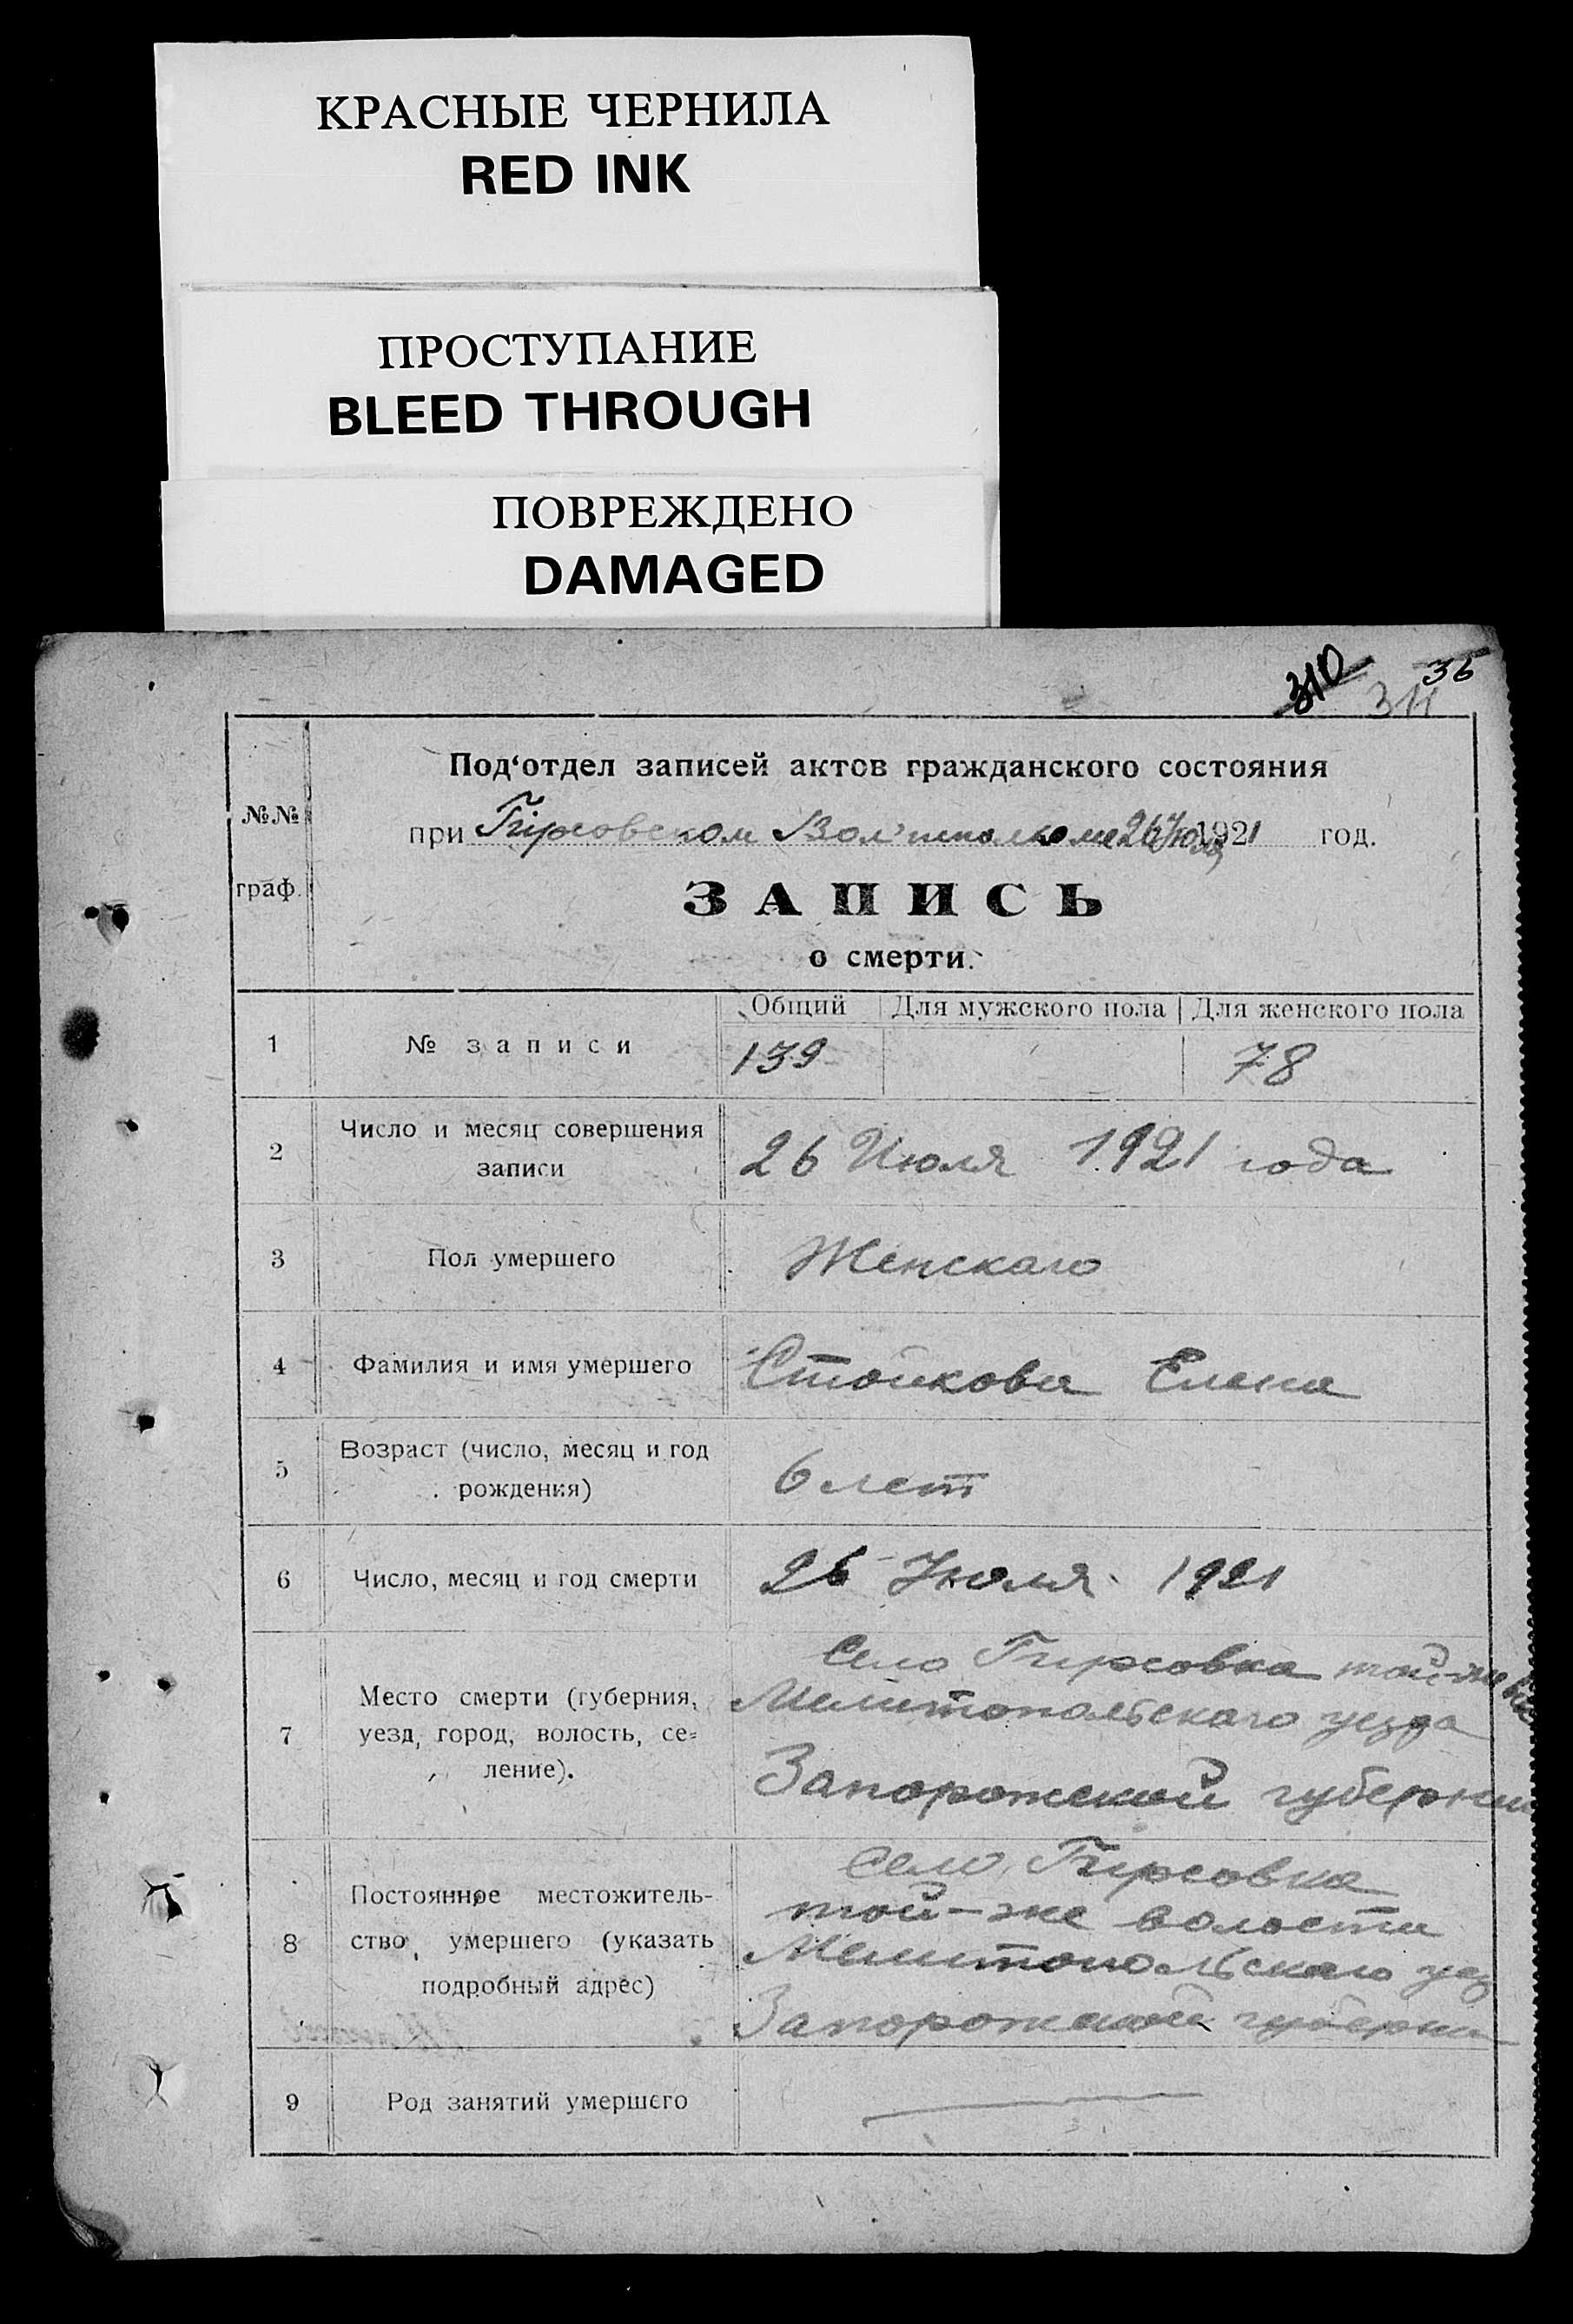 КРАСНЫЕ ЧЕРНИЛА
RED INK
ПРОСТУПАНИЕ
BLEED THROUGH
ПОВРЕЖДЕНО
DAMAGED
310 36
311
Под‘отдел записей актов гражданского состояния
№№ граф.
при Гирсовском Вол'исполкоме 26 Июля 1921 год.
ЗАПИСЬ
о смерти.
Общий Для мужского пола Для женского пола
1 № записи 139 78
2 Число и месяц совершения
записи 26 Июля 1921 года
3 Пол умершего Женскаго
4 Фамилия и имя умершего Стойкова Елена
5 Возраст (число, месяц и год
рождения) 6 лет
6 Число, месяц и год смерти 26 Июля 1921
7 Место смерти (губерния,
уезд, город, волость, се-
ление).
Село Гирсовка той-же
Мелитопольскаго уезда
Запорожской губернии
8 Постоянное местожитель-
ство умершего (указать
подробный адрес)
Село Гирсовка
той-же волости
Мелитопольскаго уез
Запорожской губернии
9 Род занятий умершего